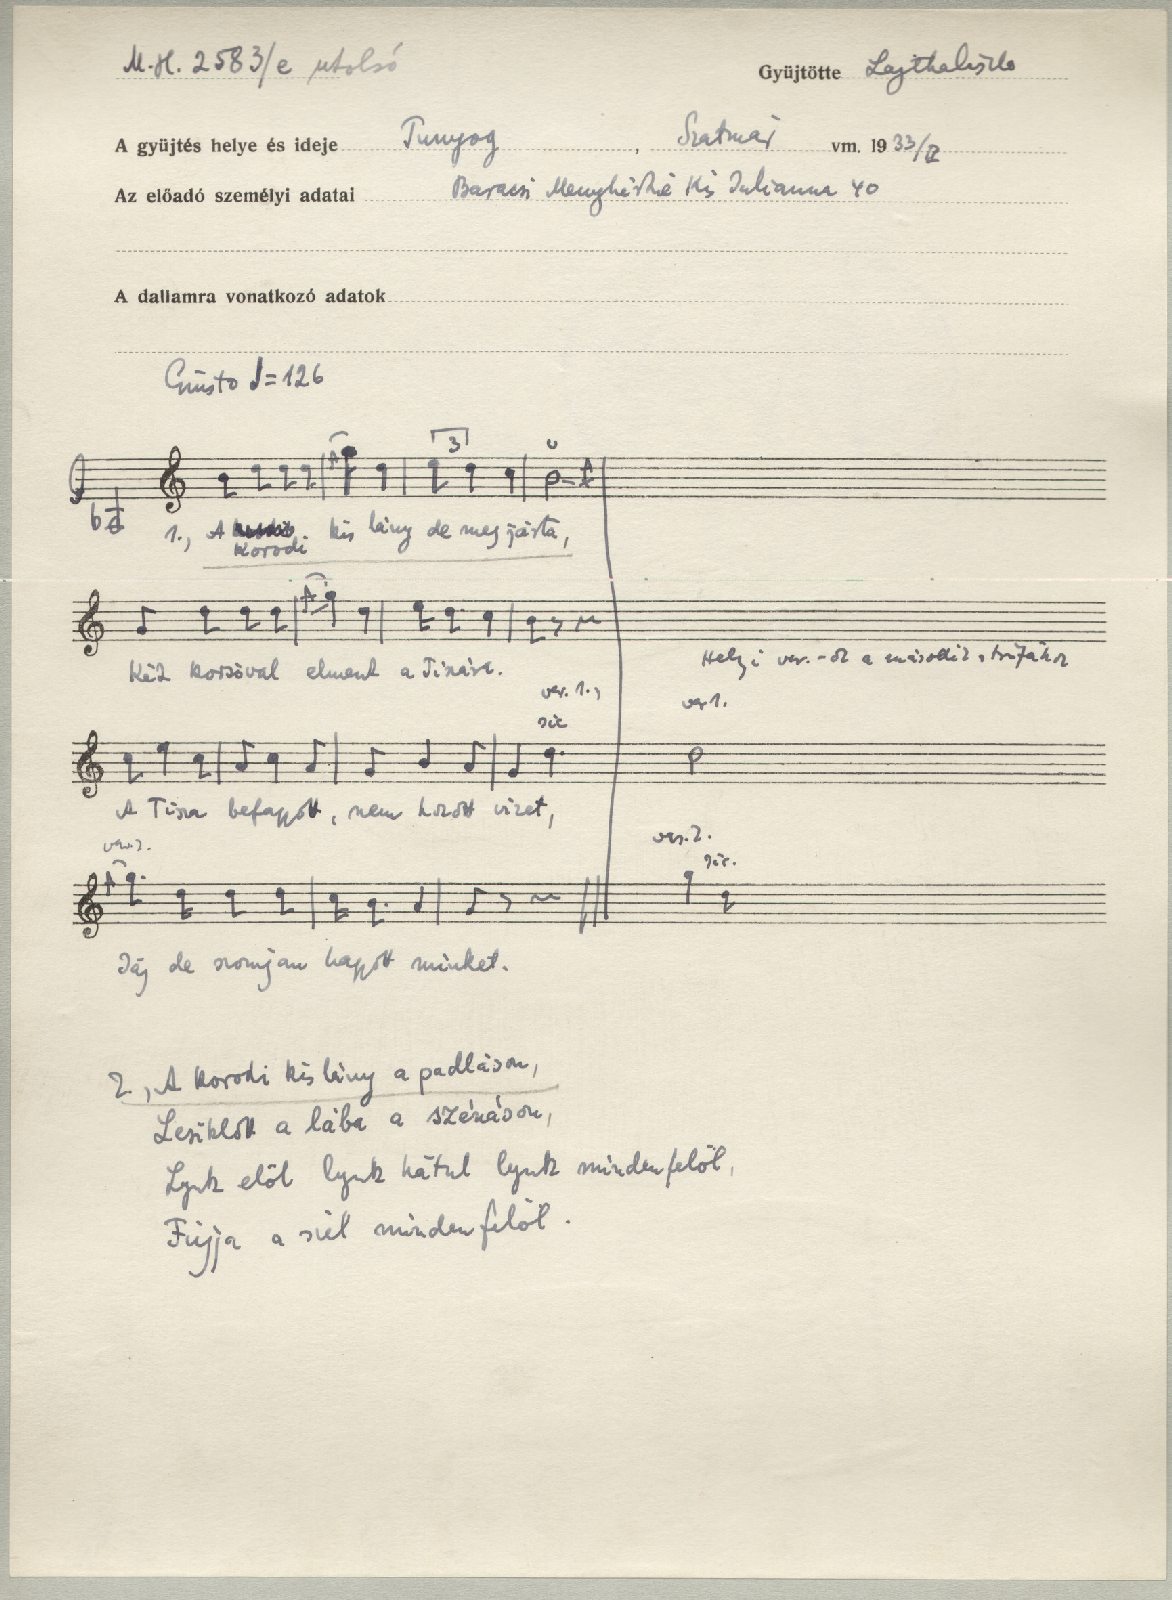 M.H. 2583/e utolsó
Gyüjtötte Lajtha László
A gyüjtés helye és ideje Tunyog, Szatmár vm. 1933/
Az előadó személyi adatai Menyhértné Kis Julianna 40
A dallamra vonatkozó adatok
Giusto ♩=126
3
1., A korodi kis lány de megjárta,
Két korsóval elment a Tiszára.
Helyi var.-ok a második strófához
var. 1., sic
var 1.
A Tisza befagyott, nem hozott vizet,
var. 2.
var. 2.
Jáj de szomjan hagyott minket.
2, A korodi kis lány a padláson,
Lesiklott a lába a szénáson,
Lyuk elöl lyuk hátul lyuk mindenfelöl,
Fujja a szél mindenfelöl.